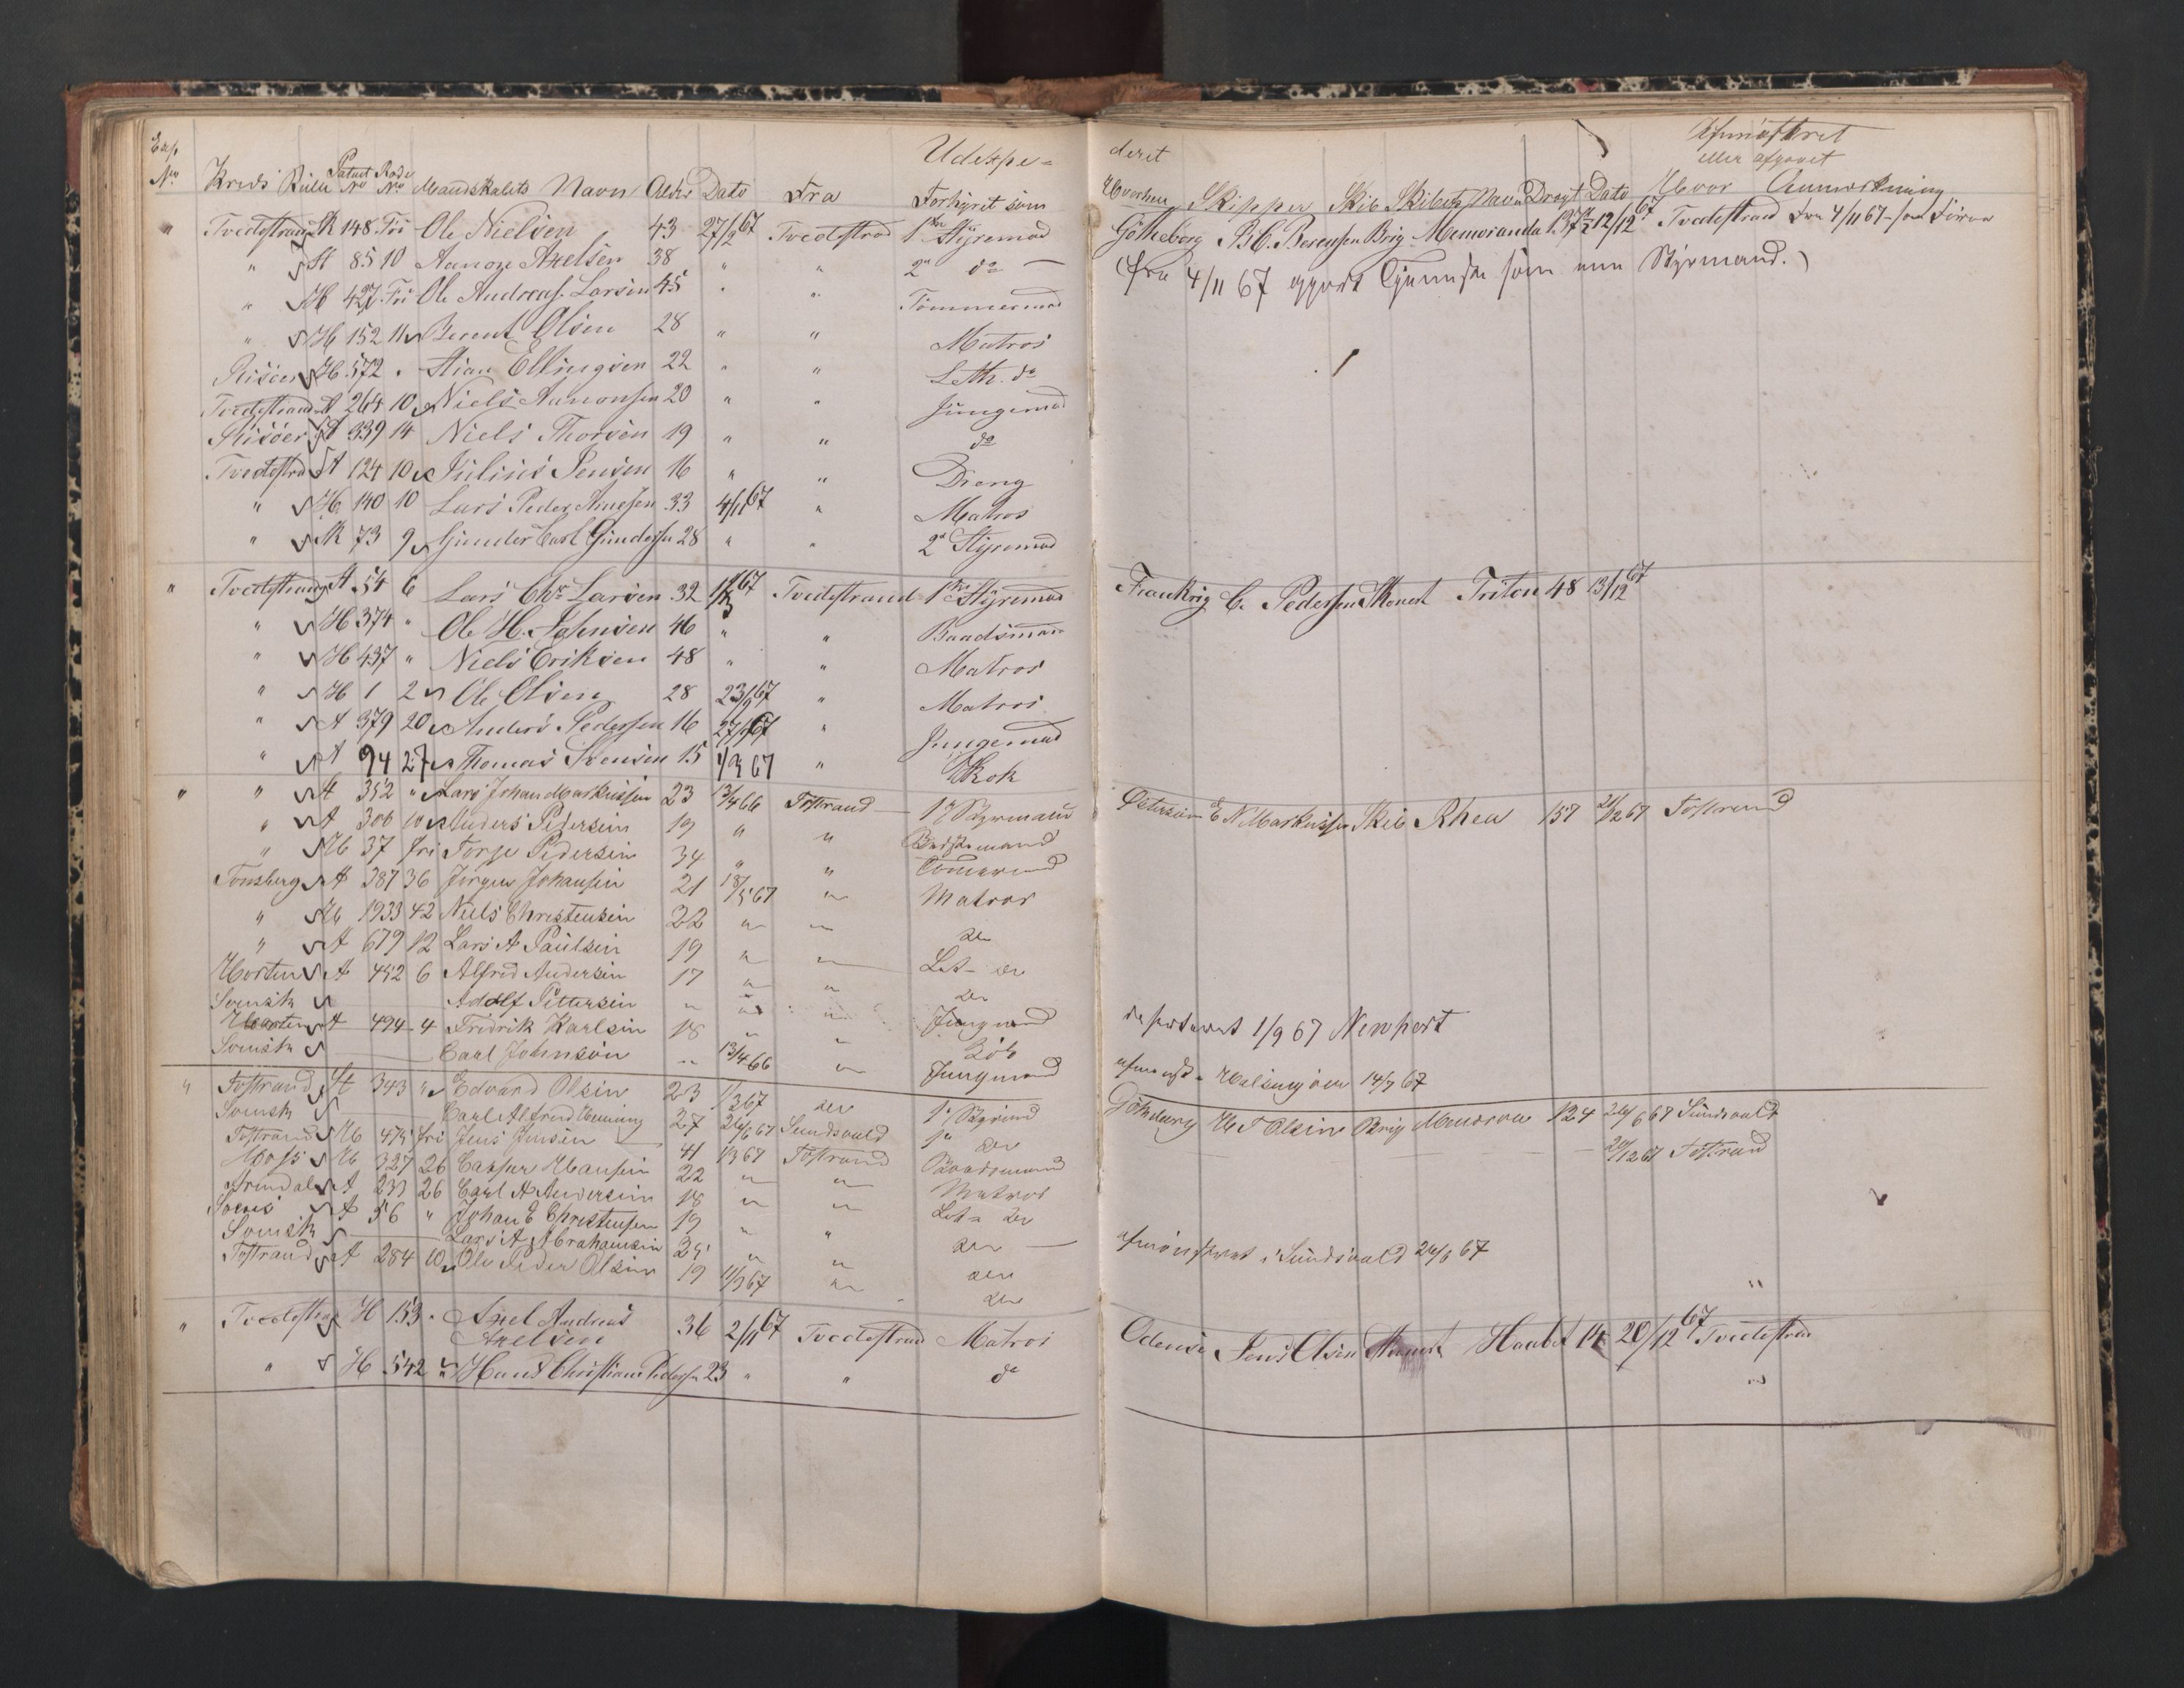 Exp No. Kreds Rulle Patent No Rode No Mandskabets Navn Alder Dato Fra Udexpe= Forhyret som
deret Hvorhen Skipper Skib Skibets Navn Drægt Dato Hvor Anmærkning
Afmønstret eller afgaaet
" Tvedestrand 148 Fri Ole Nielsen 43 27/2 67 Tvedestrd 1ste Styremad Gøtheborg Brig Memoranda 137½ 12/12 67 Tvedestrand fra 4/11 67
" 85 10 Aanon Axelsen 38 " " 2n do (fra 4/11 67 gjort Tjeneste som een Styrmand.)
" H 427 Fri Ole Andreas Larsen 45 " " Tømmermad
" H 152 11 Berent Olsen 28 " " Matros
Risøer H 572 " Stian Ellingsen 22 " " Leth. do
Tvedestrand A 264 10 Niels Aanonsen 20 " " Jungemad
Risøer A 339 14 Niels Thorsen 19 " " do
Tvedestrd A 124 10 Julius Jensen 16 " " Dreng
" H 140 10 Lars Peder 33 4/11 67 " Matros
" 73 9 Gunder Carl Gundersen 28 " " 2n Styremad
" Tvedestrand A 54 6 Lars Chr. Larsen 32 67 Tvedestrand 1ste Styremad Frankrig C. Pedersen Skonert Triton 48 13/12 67
" H 374 " Ole H. Johnsen 46 " " Baadsman
" H 437 " Niels Eriksen 48 " " Matros
" H 1 2 Ole Olsen 28 67 " Matros
" A 379 20 Anders Pedersen 16 67 " Jungemad
" A 94 27 Thomas Svensen 15 1/3 67 " Kok
" " A 352 " Lars Johan Markussen 23 13/4 66 Tvstrand 1ste Styrmand Østersøen E N Markussen Skib Rhea 157 67 Tvstrand
" A 306 10 Anders Pedersen 19 " " Baadsmand
" 37 fri Torje Pedersen 34 " " Tømermd
Tønsberg A 387 36 Jørgen Johansen 21 18/5 67 " Matros
" 1933 42 Niels Christensen 22 " " do
" A 679 12 Lars A Paulsen 19 " " Let- do
Horten A 452 6 Alfred Andersen 17 " " do
Svensk Adolf Pettersen " " " Jungmand deserteret 1/9 67 Newport
Horten A 494 4 Fredrik Karlsen 18 " "
Svensk Carl Johnson " 13/4 66 " Jungmand afmønst. Helsingøer 14/7 67
" Tvstrand A 343 " Edvard Olsen 23 1/3 67 do 1ste Styrmd Gøteborg H T Olsen Brig 124 24/6 67 Sundsvald
Svensk Carl Alfred Henning 27 24/6 67 Sundsvald 1ste do 20/12 67 Tvstrand
Tvstrand 475 fri Jens Jensen 41 1/3 67 Tvstrand Baadsmand
Moss 327 26 Casper Hansen 22 " " Matros
Arendal A 231 26 Carl A Andersen 18 " " Let- do
A 56 " Johan E Christensen 19 " " do
Svensk Lars A Abrahamsen 25 " " do afmønstret i Sundsvald 24/6 67
Tvstrand A 284 10 Ole Peder Olsen 19 11/3 67 " do "
" Tvedestrd H 153 " Axel Andreas Axelsen 36 2/11 67 Tvedestrand Matros Odense Jens Olsen Skonert Haabet 14 20/12 67 Tvedestrand
" H 542 " Hans Christian Pedersen 23 " " do "